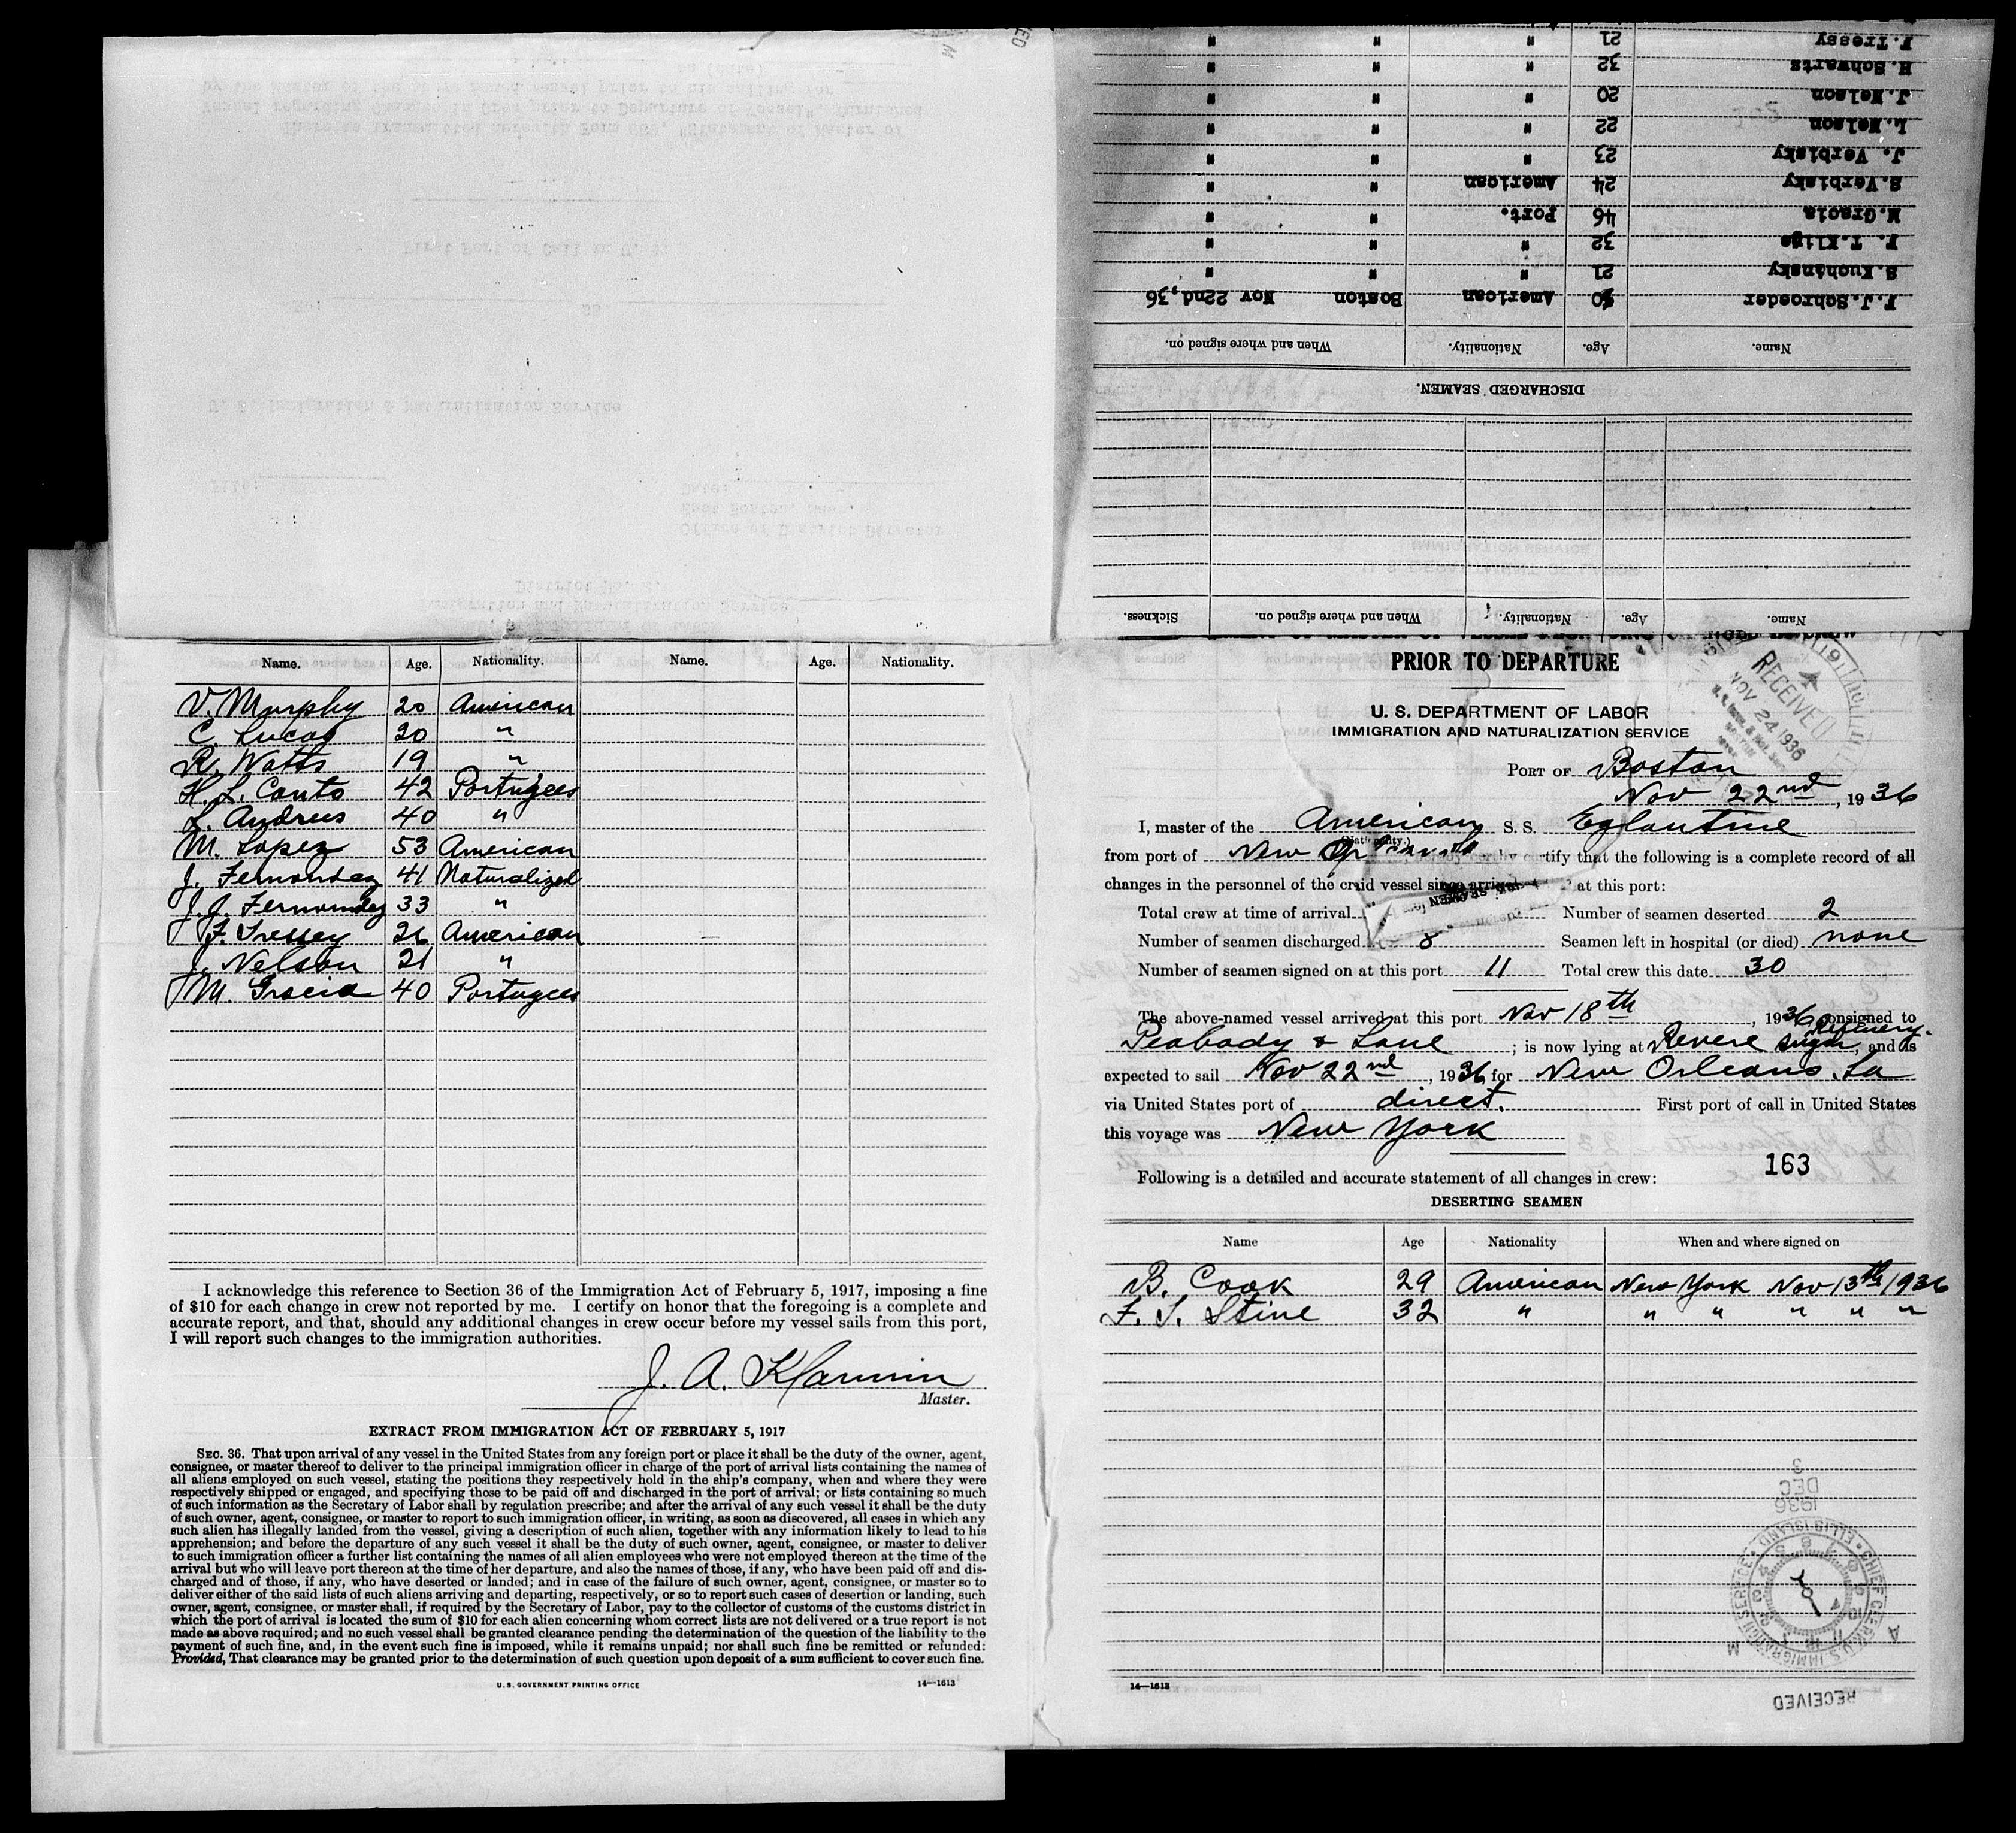 Name. Age. Nationality. Name. Age. Nationality.
V. Murphy 20 American
C. Lucas 20 "
R. Watts 19 "
H. L. Couto 42 Portugees
L. Andrews 40 "
M. Lopez 53 American
J. Fernandez 41 Naturalized
J. J. Fernandez 33 "
F. Tressey 26 American
J. Nelson 21 "
M. Gracia 40 Portugees
I acknowledge this reference to Section 36 of the Immigration Act of February 5, 1917, imposing a fine
of $10 for each change in crew not reported by me. I certify on honor that the foregoing is a complete and
accurate report, and that, should any additional changes in crew occur before my vessel sails from this port,
I will report such changes to the immigration authorities.
J. A.
Master.
EXTRACT FROM IMMIGRATION ACT OF FEBRUARY 5, 1917
SEC. 36. That upon arrival of any vessel in the United States from any foreign port or place it shall be the duty of the owner, agent,
consignee, or master thereof to deliver to the principal immigration officer in charge of the port of arrival lists containing the names of
all aliens employed on such vessel, stating the positions they respectively hold in the ship's company, when and where they were
respectively shipped or engaged, and specifying those to be paid off and discharged in the port of arrival; or lists containing so much
of such information as the Secretary of Labor shall by regulation prescribe; and after the arrival of any such vessel it shall be the duty
of such owner, agent, consignee, or master to report to such immigration officer, in writing, as soon as discovered, all cases in which any
such alien has illegally landed from the vessel, giving a description of such alien, together with any information likely to lead to his
apprehension; and before the departure of any such vessel it shall be the duty of such owner, agent, consignee, or master to deliver
to such immigration officer a further list containing the names of all alien employees who were not employed thereon at the time of the
arrival but who will leave port thereon at the time of her departure, and also the names of those, if any, who have been paid off and dis-
charged and of those, if any, who have deserted or landed; and in case of the failure of such owner, agent, consignee, or master so to
deliver either of the said lists of such aliens arriving and departing, respectively, or so to report such cases of desertion or landing, such
owner, agent, consignee, or master shall, if required by the Secretary of Labor, pay to the collector of customs of the customs district in
which the port of arrival is located the sum of $10 for each alien concerning whom correct lists are not delivered or a true report is not
made as above required; and no such vessel shall be granted clearance pending the determination of the question of the liability to the
payment of such fine, and, in the event such fine is imposed, while it remains unpaid; nor shall such fine be remitted or refunded:
Provided, That clearance may be granted prior to the determination of such question upon deposit of a sum sufficient to cover such fine.
U. S. GOVERNMENT PRINTING OFFICE 14—1613
Name. Age. Nationality. When and where signed on. Sickness.
DISCHARGED SEAMEN.
Name. Age. Nationality. When and where signed on.
F.J.Schroeder American Boston Nov 22nd,36
S.Kuchinsky 21 " " "
F. T.Kliye 32 " " "
M.Gracia 46 Port. " "
S.Verbisky 24 American " "
J. Verbisky 23 " " "
L.Nelson 22 " " "
J.Nelson 20 " " "
H.Schwartz 32 " " "
F.Tressy 21 " " "
PRIOR TO DEPARTURE
RECEIVED
NOV 24 1936
U. S. DEPARTMENT OF LABOR
IMMIGRATION AND NATURALIZATION SERVICE
PORT OF Boston
Nov 22nd, 1936
I, master of the American S. S. Eglantine
from port of New certify that the following is a complete record of all
changes in the personnel of the said vessel since arrival at this port:
Total crew at time of arrival Number of seamen deserted 2
Number of seamen discharged 8 Seamen left in hospital (or died) none
Number of seamen signed on at this port 11 Total crew this date 30
The above-named vessel arrived at this port Nov 18th, 1936, consigned to
Peabody & Lane; is now lying at Revere Sugar Refinery, and is
expected to sail Nov 22nd, 1936, for New Orleans, La
via United States port of direct. First port of call in United States
this voyage was New York
163
Following is a detailed and accurate statement of all changes in crew:
DESERTING SEAMEN
Name Age Nationality When and where signed on
B. Cook 29 American New York Nov 13th 1936
F. S. Stine 32 " " " " " "
14—1613
RECEIVED
CHIEF CLERK U.S. IMMIGRATION SERVICE • ELLIS ISLAND •
A M
1936
DEC
3